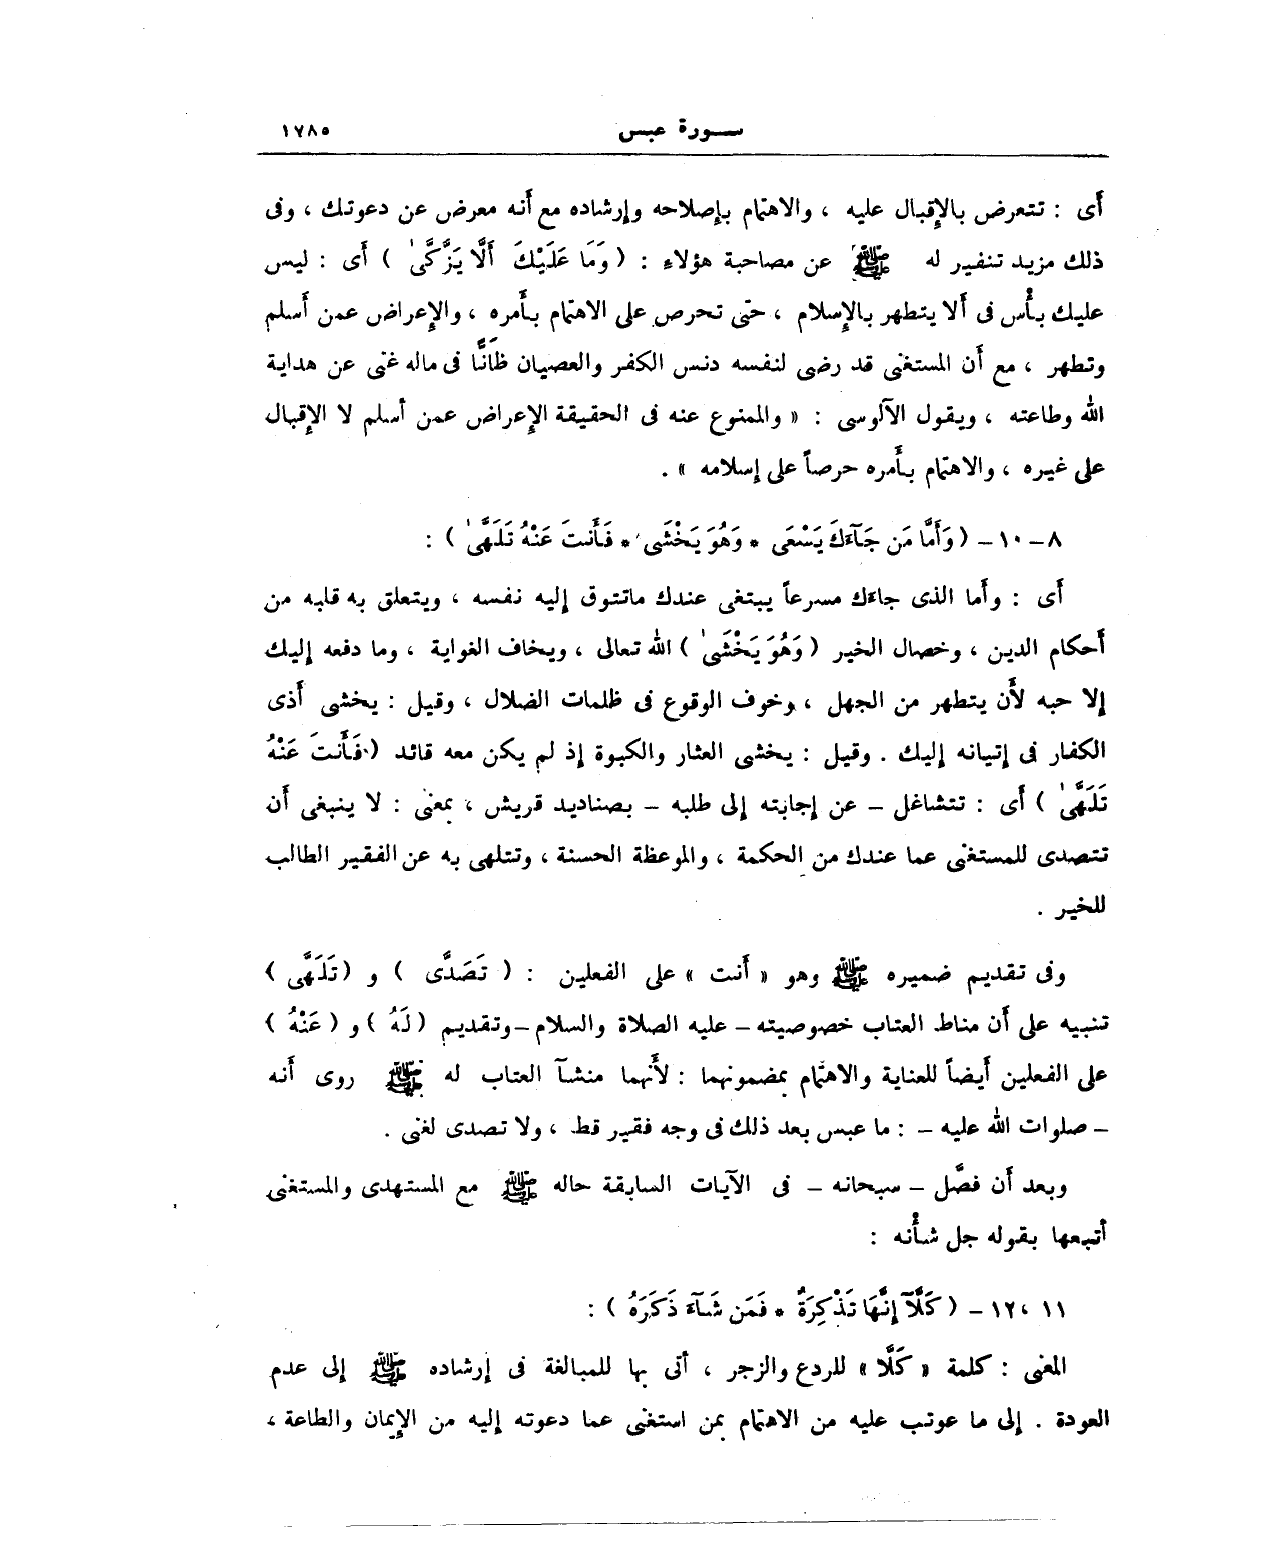 سورة عبس ١٧٨٥
أى : تتعرض بالإقبال عليه ، والاهتمام بإصلاحه وإرشاده مع أنه معرض عن دعوتك ، وفى
ذلك مزيد تنفير له ﷺ عن مصاحبة هؤلاء : ( وَمَا عَلَيْكَ أَلَّا يَزَّكَّىٰ ) أى : ليس
عليك بأس فى ألا يتطهر بالإسلام ، حتى تحرص على الاهتمام بأمره ، والإعراض عمن أسلم
وتطهر ، مع أن المستغنى قد رضى لنفسه دنس الكفر والعصيان ظانًّا فى ماله غنى عن هداية
الله وطاعته ، ويقول الآلوسى : « والممنوع عنه فى الحقيقة الإعراض عمن أسلم لا الإقبال
على غيره ، والاهتمام بأمره حرصاً على إسلامه » .
٨ – ١٠ – ( وَأَمَّا مَن جَآءَكَ يَسْعَى * وَهُوَ يَخْشَى * فَأَنتَ عَنْهُ تَلَهَّىٰ ) :
أى : وأما الذى جاءك مسرعاً يبتغى عندك ماتتوق إليه نفسه ، ويتعلق به قلبه من
أحكام الدين ، وخصال الخير ( وَهُوَ يَخْشَىٰ ) الله تعالى ، ويخاف الغواية ، وما دفعه إليك
إلا حبه لأن يتطهر من الجهل ، وخوف الوقوع فى ظلمات الضلال ، وقيل : يخشى أذى
الكفار فى إتيانه إليك . وقيل : يخشى العثار والكبوة إذ لم يكن معه قائد ( فَأَنتَ عَنْهُ
تَلَهَّىٰ ) أى : تتشاغل – عن إجابته إلى طلبه – بصناديد قريش ، بمعنى : لا ينبغى أن
تتصدى للمستغنى عما عندك من الحكمة ، والموعظة الحسنة ، وتتلهى به عن الفقير الطالب
للخير .
وفى تقديم ضميره ﷺ وهو « أنت » على الفعلين : ( تَصَدَّى ) و ( تَلَهَّى )
تنبيه على أن مناط العتاب خصوصيته – عليه الصلاة والسلام – وتقديم ( لَهُ ) و ( عَنْهُ )
على الفعلين أيضاً للعناية والاهتمام بمضمونهما : لأنهما منشآ العتاب له ﷺ روى أنه
– صلوات الله عليه – : ما عبس بعد ذلك فى وجه فقير قط ، ولا تصدى لغنى .
وبعد أن فصَّل – سبحانه – فى الآيات السابقة حاله ﷺ مع المستهدى والمستغنى
أتبعها بقوله جل شأنه :
١١ ، ١٢ – ( كَلَّآ إِنَّهَا تَذْكِرَةٌ * فَمَن شَآءَ ذَكَرَهُ ) :
المعنى : كلمة « كَلَّا » للردع والزجر ، أتى بها للمبالغة فى إرشاده ﷺ إلى عدم
العودة . إلى ما عوتب عليه من الاهتمام بمن استغنى عما دعوته إليه من الإيمان والطاعة ،